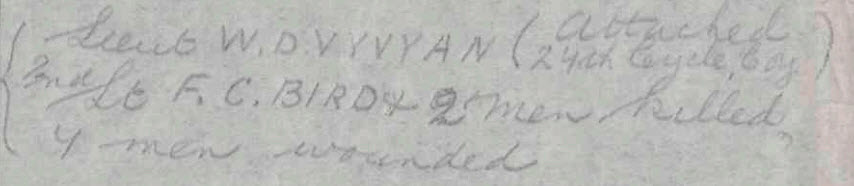 Lieut W.D. VYVYAN (Attached 24th Cycle. Coy)
2nd Lt F.C. BIRD & 2 men killed,
4 men wounded